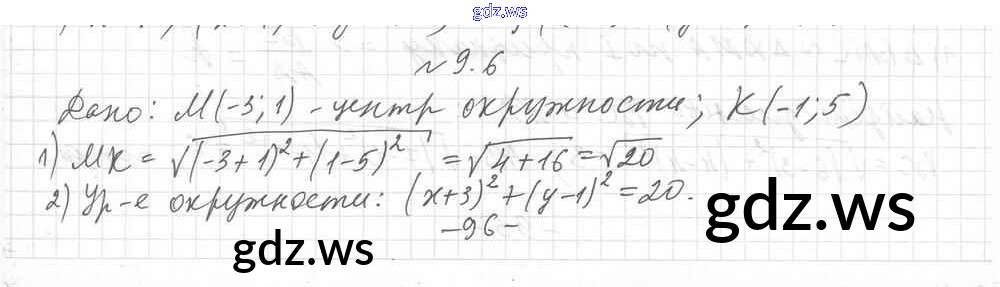 gdz.ws
№ 9.6
Дано: М(-3; 1) - центр окружности; К(-1; 5)
1) МК = √((-3+1)²+(1-5)²) = √(4+16) = √20
2) Ур-е окружности: (x+3)²+(y-1)²=20.
-96-
gdz.ws
gdz.ws